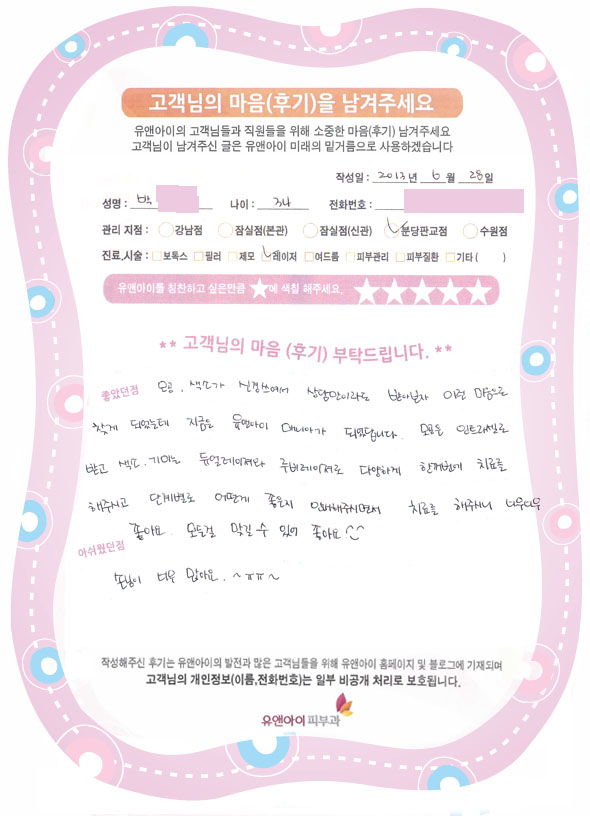 고객님의 마음(후기)을 남겨주세요
유앤아이의 고객님들과 직원들을 위해 소중한 마음(후기) 남겨주세요
고객님이 남겨주신 글은 유앤아이 미래의 밑거름으로 사용하겠습니다
작성일 : 2013년 6월 28일
성명 : 박 나이 : 34 전화번호 :
관리 지점 : 강남점 잠실점(본관) 잠실점(신관) 분당판교점 수원점
진료,시술 : 보톡스 필러 제모 레이저 여드름 피부관리 피부질환 기타 ( )
유앤아이를 칭찬하고 싶은만큼 ★에 색칠 해주세요. ★★★★★
** 고객님의 마음 (후기) 부탁드립니다. **
좋았던점 모공, 색소가 신경쓰여서 상담만이라도 받아보자 이런 마음으로
찾게 되었는데 지금은 유앤아이 매니아가 되었답니다. 모공은 인트라셀로
받고 색소.기미는 듀얼레이저와 루비레이저로 다양하게 한꺼번에 치료를
해주시고 단계별로 어떤게 좋은지 안내해주시면서 치료를 해주시니 너무너무
좋아요. 모든걸 맡길 수 있어 좋아요
아쉬웠던점
손님이 너무 많아요. ~ㅠㅠ~
작성해주신 후기는 유앤아이의 발전과 많은 고객님들을 위해 유앤아이 홈페이지 및 블로그에 기재되며
고객님의 개인정보(이름,전화번호)는 일부 비공개 처리로 보호됩니다.
유앤아이피부과